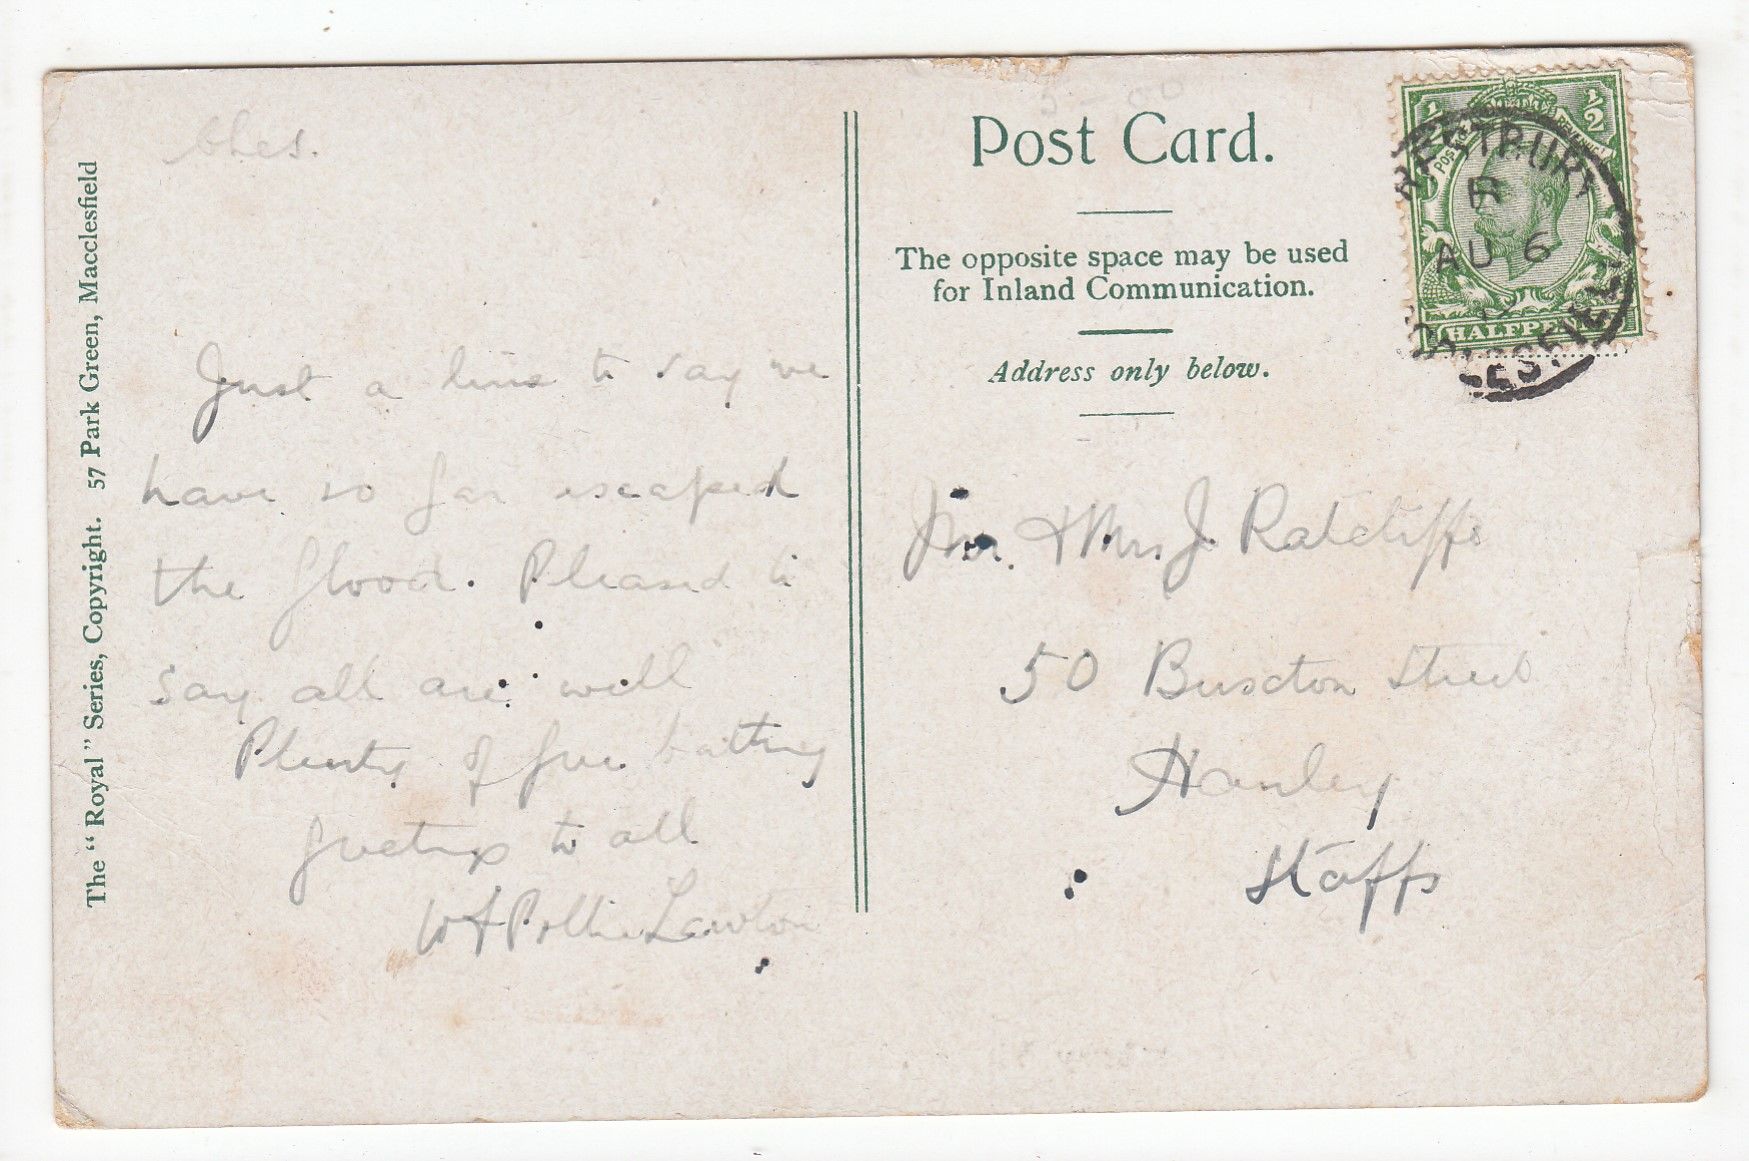 Ches.
The "Royal" Series, Copyright. 57 Park Green, Macclesfield
Just a line to say we
have so far escaped
the flood. Pleased to
say all are well
Plenty of free bathing
to all
W & Pollie Lawton
Post Card.
The opposite space may be used
for Inland Communication.
Address only below.
½ ½
POSTAGE REVENUE
HALFPENNY
PRESTBURY
AU 6
12
MACCLESFIELD
Mr. & Mrs. J. Ratcliffe
50 Buxton Street
Hanley
Staffs